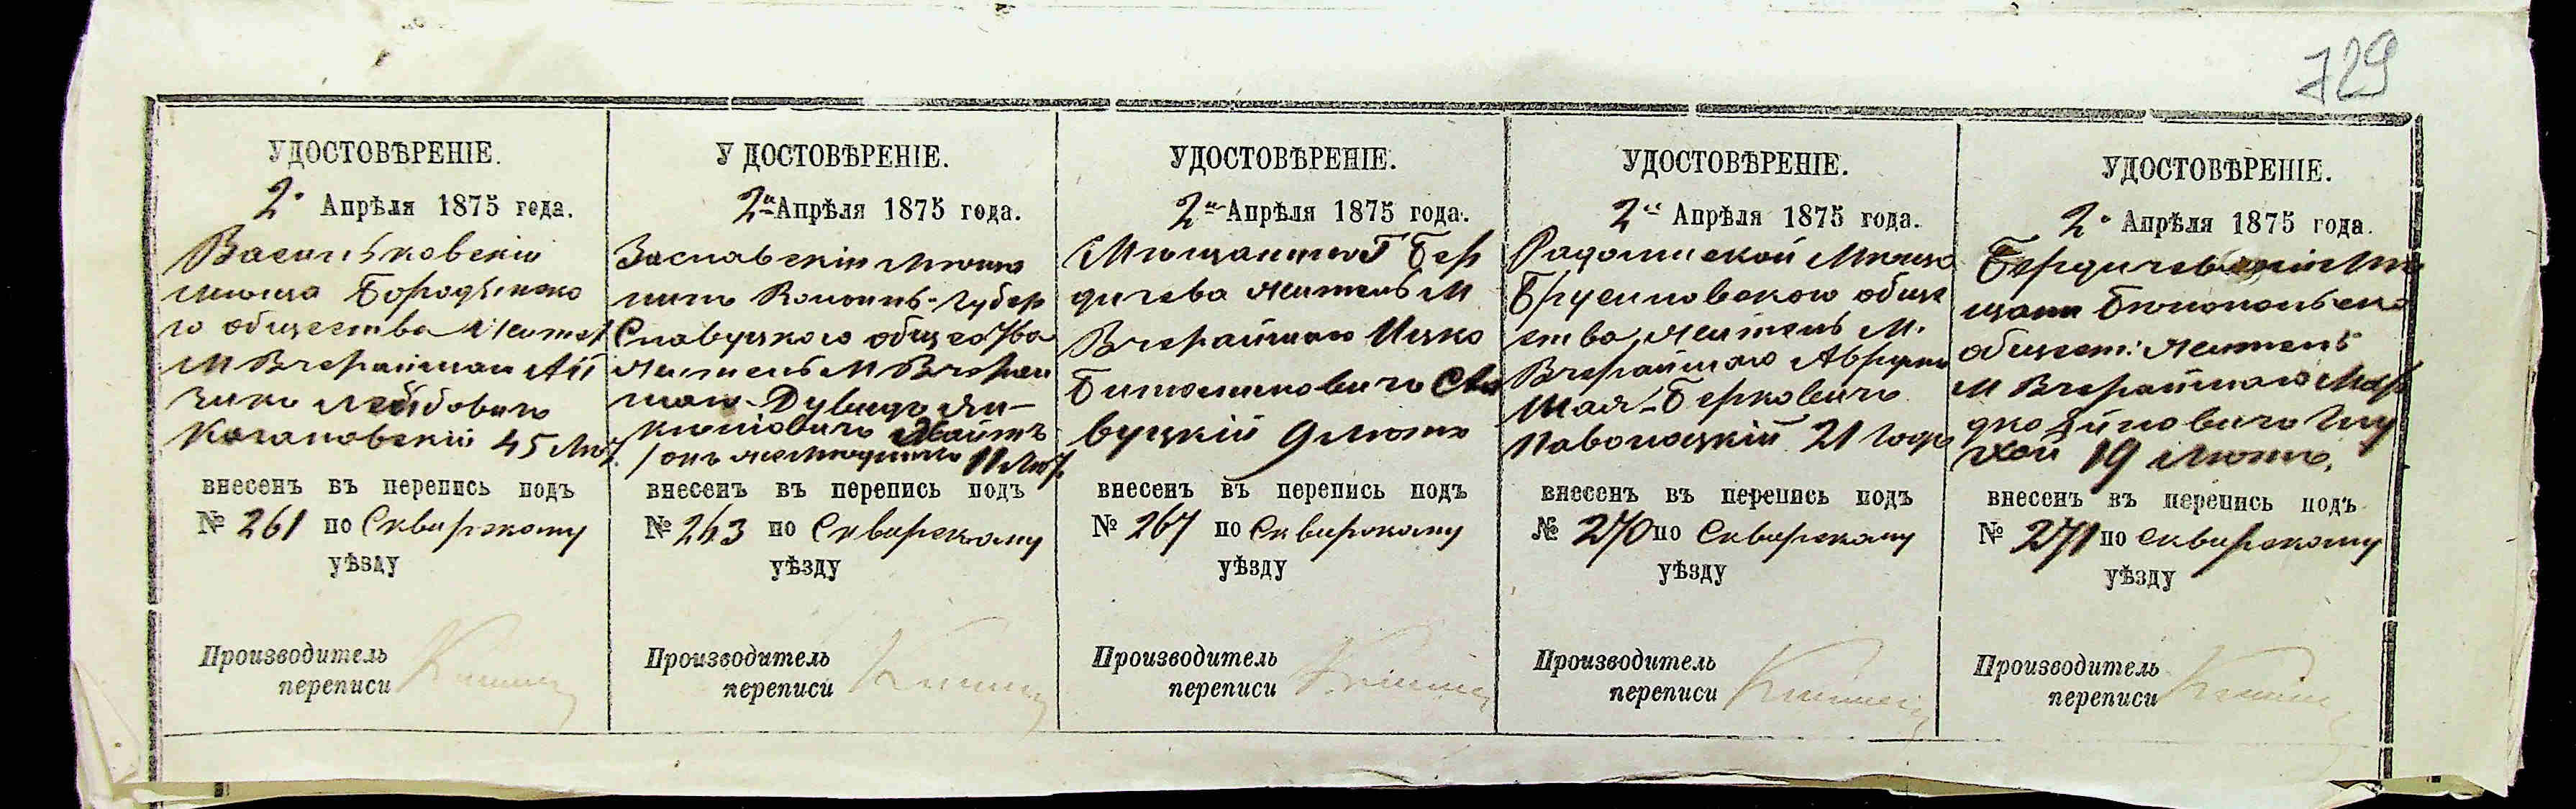 729
УДОСТОВѢРЕНІЕ.
2. Апрѣля 1875 года.
Васильковскій
мѣща Бородянско
го общества жител
М Вчерайшаи
Лейбовичъ
Кагановскій 45 лѣт
внесенъ въ перепись подъ
№ 261 по Сквирскому
уѣзду
Производитель
переписи
У ДОСТОВѢРЕНІЕ.
2го Апрѣля 1875 года.
Заславскій мѣща
нинъ Волынъ-Губер
Славуцкого общества
житель М Вчерай
шаго Дувидъ Ян-
келіовичъ
онъ же 11 лѣт
внесенъ въ перепись подъ
№ 263 по Сквирскому
уѣзду
Производитель
переписи
УДОСТОВѢРЕНІЕ.
2го Апрѣля 1875 года.
Мѣщанинъ Г Бер
дичева житель М
Вчерайшаго Ицко
Сла
вуцкій 9 лѣтъ
внесенъ въ перепись подъ
№ 267 по Сквирскому
уѣзду
Производитель
переписи
УДОСТОВѢРЕНІЕ.
2го Апрѣля 1875 года.
Радомыскій Мѣща
Брусиловского обще
ства, житель М.
Вчерайшаго Аврум
Шая-Берковичъ
Паволоцкій 21 года
внесенъ въ перепись подъ
№ 270 по Сквирскому
уѣзду
Производитель
переписи
УДОСТОВѢРЕНІЕ.
2. Апрѣля 1875 года.
Бердичевскій Мѣ
щани Бѣлопольско
общест: житель
М Вчерайшаго Мор
дко Глу
хой 19 лѣтъ,
внесенъ въ перепись подъ
№ 271 по Сквирскому
уѣзду
Производитель
переписи